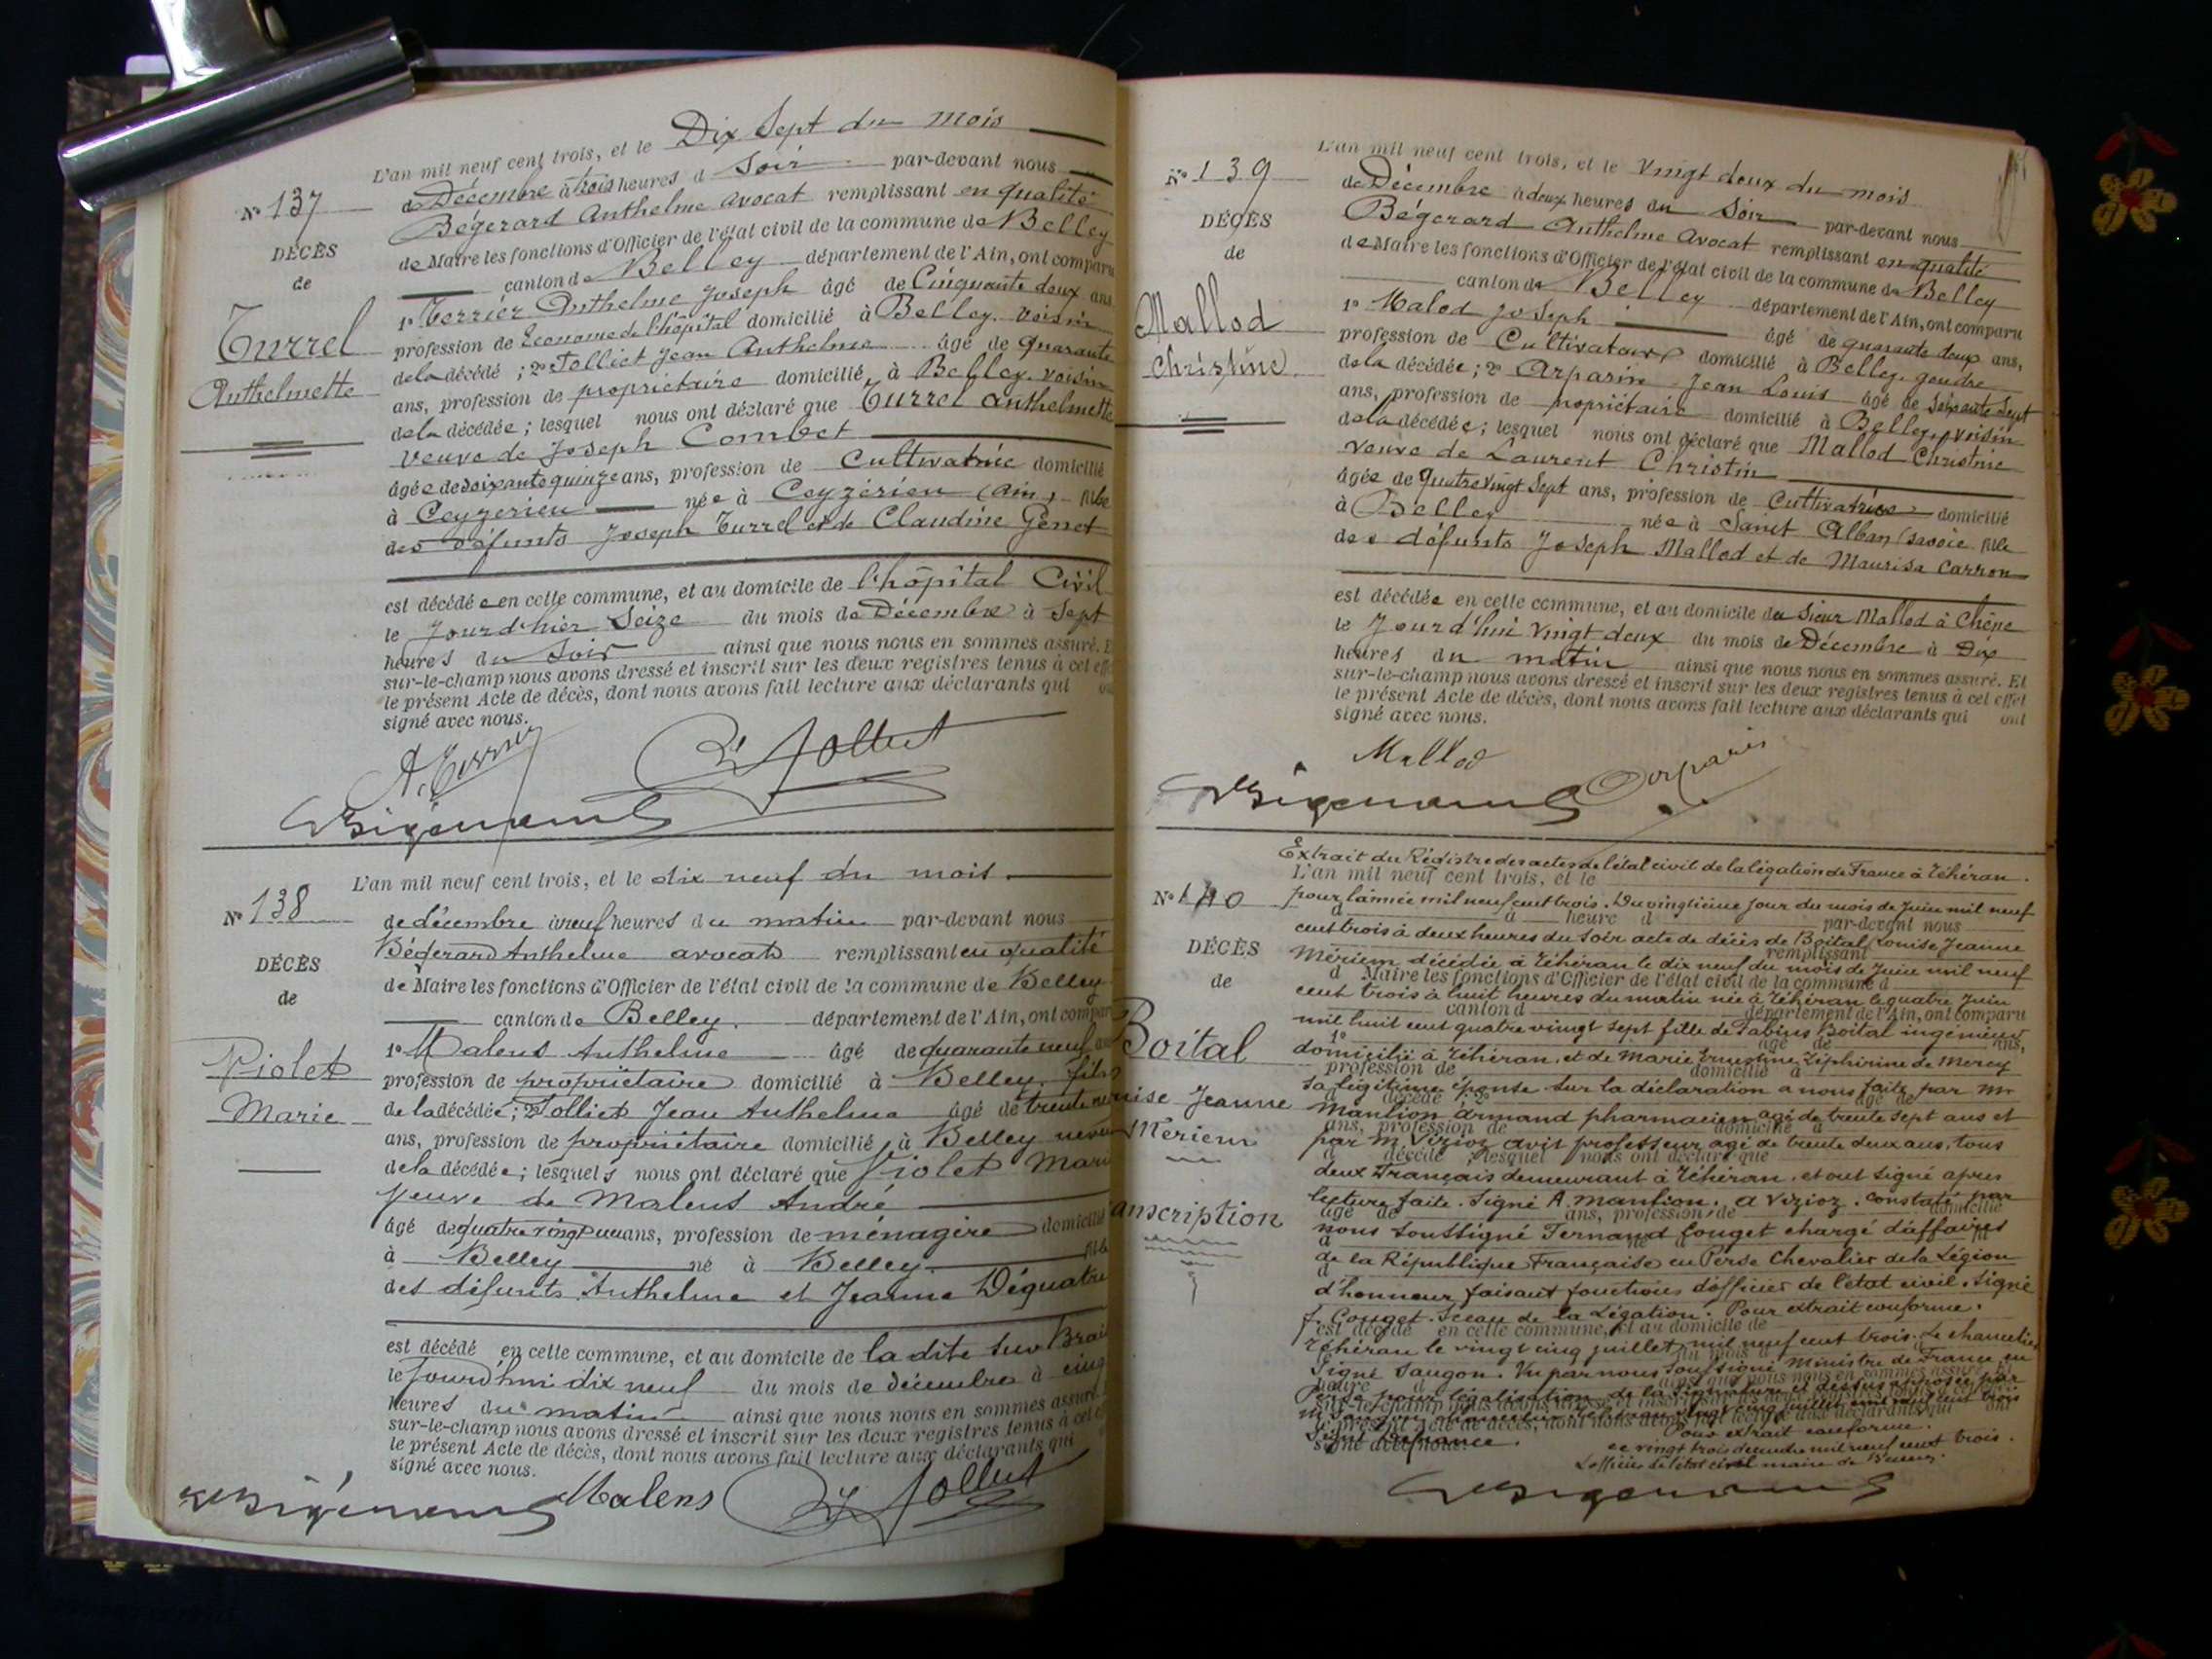 L'an mil neuf cent trois, et le Dix Sept du mois
de Décembre à trois heures d Soir par-devant nous
Bégerard Anthelme Avocat remplissant en qualité
de Maire les fonctions d'Officier de l'état civil de la commune de Belley
canton de Belley département de l'Ain, ont comparu
1° Terrier Anthelme Joseph âgé de Cinquante deux ans
profession de Econome de l'hôpital domicilié à Belley. voisin
de la décédé ; 2° Jolliet Jean Anthelme âgé de quarante
ans, profession de propriétaire domicilié à Belley. voisin
de la décédée ; lesquel nous ont déclaré que Turrel Anthelmette
veuve de Joseph Combet
âgée de soixante quinze ans, profession de Cultivatrice domicilié
à Ceyzerieu née à Ceyzérieu (Ain) fille
des défunts Joseph Turrel et de Claudine Genet
est décédée en cette commune, et au domicile de l'hôpital Civil
le Jour d'hier Seize du mois de Décembre à Sept
heures du Soir ainsi que nous nous en sommes assuré. E
sur-le-champ nous avons dressé et inscrit sur les deux registres tenus à cet eff
le présent Acte de décès, dont nous avons fait lecture aux déclarants qui
signé avec nous.
N° 137
DÉCÈS
de
Turrel
Anthelmette
L'an mil neuf cent trois, et le dix neuf du mois
de décembre à neuf heures du matin par-devant nous
Bégerard Anthelme avocat remplissant en qualité
de Maire les fonctions d'Officier de l'état civil de la commune de Belley
canton de Belley. département de l'Ain, ont compar
1° Malens Anthelme âgé de quarante neuf
profession de propriétaire domicilié à Belley. fils
de la décédée ; 2° Jolliet Jean Anthelme âgé de trente
ans, profession de propriétaire domicilié à Belley neveu
de la décédée ; lesquels nous ont déclaré que Piolet Mari
Veuve de Malens André
âgé de quatre vingt un ans, profession de ménagère domicilié
à Belley né à Belley. fille
des défunts Anthelme et Jeanne Déquatre
est décédé en cette commune, et au domicile de la dite sur Brai
le Jourd'hui dix neuf du mois de décembre à cinq
heures du matin ainsi que nous nous en sommes assuré
sur-le-champ nous avons dressé et inscrit sur les deux registres tenus à cet e
le présent Acte de décès, dont nous avons fait lecture aux déclarants qui
signé avec nous.
Malens Jolliet
N° 138
DÉCÈS
de
Piolet
Marie
L'an mil neuf cent trois, et le vingt deux du mois
de Décembre à deux heures du Soir par-devant nous
Bégerard Anthelme Avocat remplissant en qualité
de Maire les fonctions d'Officier de l'état civil de la commune de Belley
canton de Belley département de l'Ain, ont comparu
1° Malod Joseph âgé de quarante deux ans,
profession de Cultivateur domicilié à Belley. gendre
de la décédée ; 2° Arparin Jean Louis âgé de Soixante Sept
ans, profession de propriétaire domicilié à Belley, voisin
de la décédée ; lesquel nous ont déclaré que Mallod Christine
veuve de Laurent Christin
âgée de Quatre vingt Sept ans, profession de Cultivatrice domicilié
à Belley née à Sanct Alban (Savoie fille
des défunts Joseph Mallod et de Maurisa Carron
est décédée en cette commune, et au domicile du Sieur Mallod à Chêne
le Jour d'hui Vingt deux du mois de Décembre à Dix
heures du matin ainsi que nous nous en sommes assuré. Et
sur-le-champ nous avons dressé et inscrit sur les deux registres tenus à cet effet
le présent Acte de décès, dont nous avons fait lecture aux déclarants qui ont
signé avec nous.
Mallod
N° 139
DÉCÈS
de
Mallod
Christine
Extrait du Régistre des actes de l'état civil de la légation de France à Téhéran.
L'an mil neuf cent trois, et le
pour l'année mil neuf cent trois. Du vingtième jour du mois de Juin mil neuf
cent trois à deux heures du soir acte de décès de Boital Louise Jeanne
Mériem décédée à Téhéran le dix neuf du mois de Juin mil neuf
cent trois à huit heures du matin née à Téhéran le quatre Juin
mil huit cent quatre vingt sept fille de Fabius Boital ingénieur
domicilié à Téhéran, et de Marie Ernestine Zéphirine de Mercy
sa légitime épouse. Sur la déclaration a nous faite par Mr
Manlion Armand pharmacien agé de trente sept ans et
par M. Vizioz avit professeur agé de trente deux ans, tous
deux Français demeurant à Téhéran, et ont signé apres
lecture faite. Signé A. Manlion. A Vizioz. constaté par
nous soussigné Fernand Gouget chargé d'affaires
de la République Française en Perse Chevalier de la Légion
d'honneur faisant fonctions d'officier de l'état civil. Signé
f. Gouget. Sceau de la Légation. Pour extrait conforme.
Téhéran le vingt cinq juillet mil neuf cent trois. Le chancelier
Signé Saugon. Vu par nous soussigné Ministre de France en
Perse pour légalisation de la signature ci dessus apposée par
Pour extrait conforme.
ce vingt trois décembre mil neuf cent trois.
L'officier de l'état civil maire de
N° 140
DÉCÈS
de
Boital
uise Jeanne
Meriem
anscription